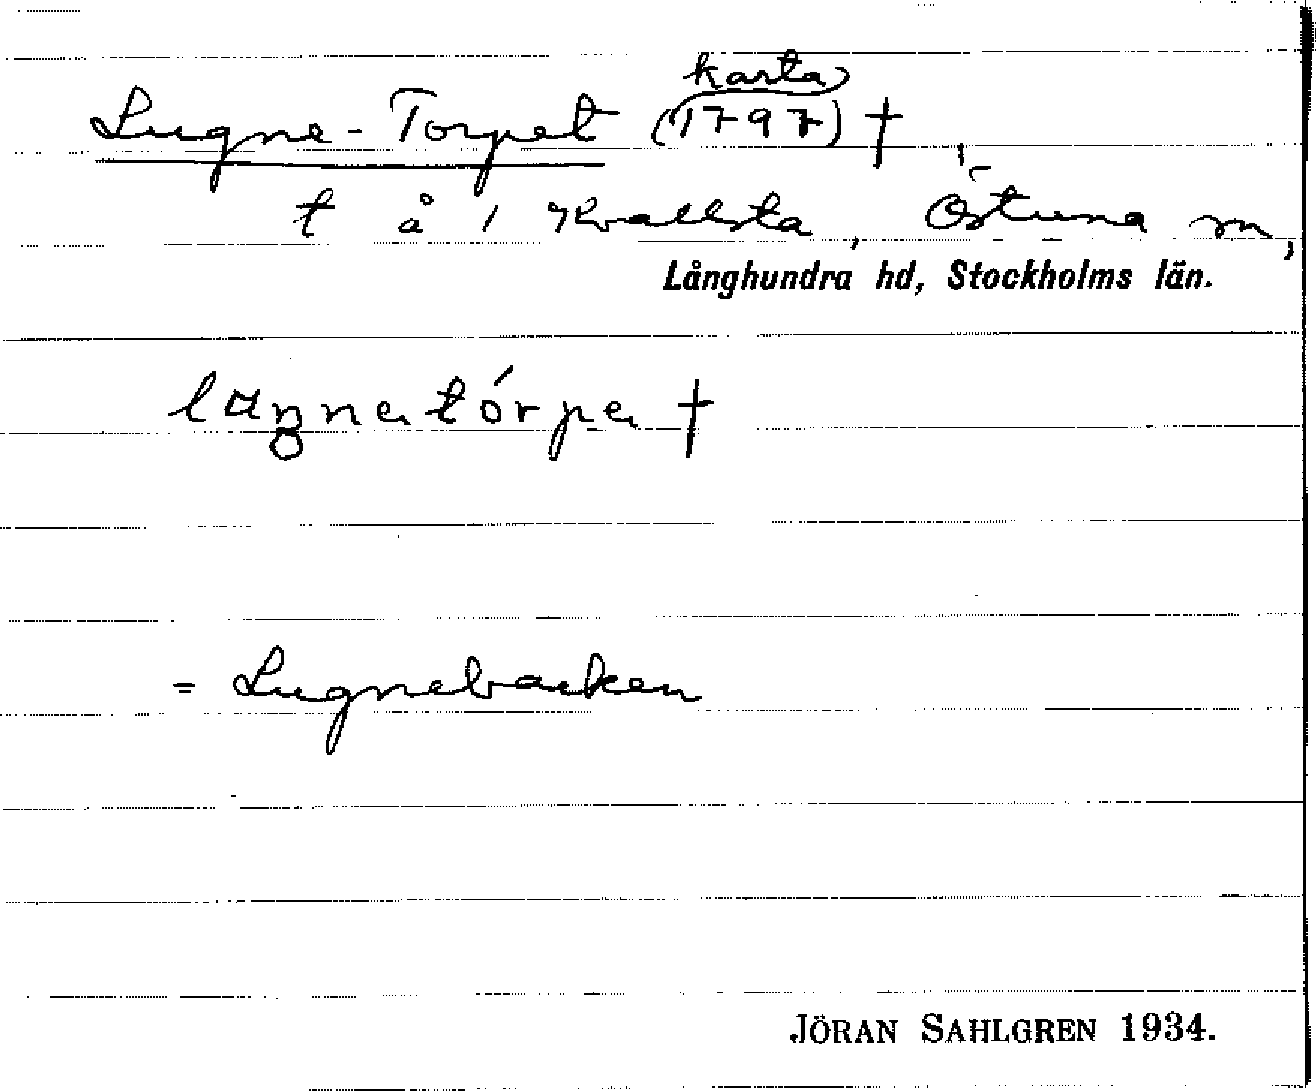 karta
Lugne-Torpet (1797) †,
t å i Kvallsta, Östuna sn,
Långhundra hd, Stockholms län.
= Lugnebacken
JÖRAN SAHLGREN 1934.